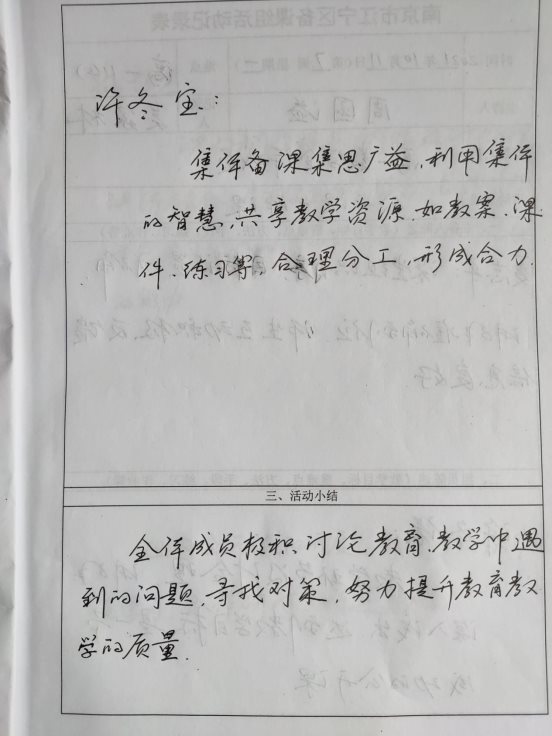 许冬宝：
集体备课集思广益，利用集体
的智慧，共享教学资源，如教案、课
件、练习等，合理分工，形成合力.
三、活动小结
全体成员积极讨论教育、教学中遇
到的问题，寻找对策，努力提升教育教
学的质量.